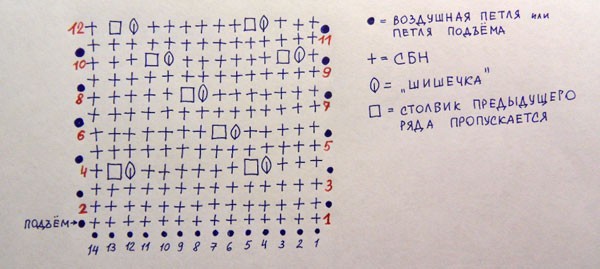 12
11
10
9
8
7
6
5
4
3
2
ПОДЪЁМ→
1
14 13 12 11 10 9 8 7 6 5 4 3 2 1
● = ВОЗДУШНАЯ ПЕТЛЯ ИЛИ
ПЕТЛЯ ПОДЪЁМА
+ = СБН
= „ШИШЕЧКА"
□ = СТОЛБИК ПРЕДЫДУЩЕГО
РЯДА ПРОПУСКАЕТСЯ